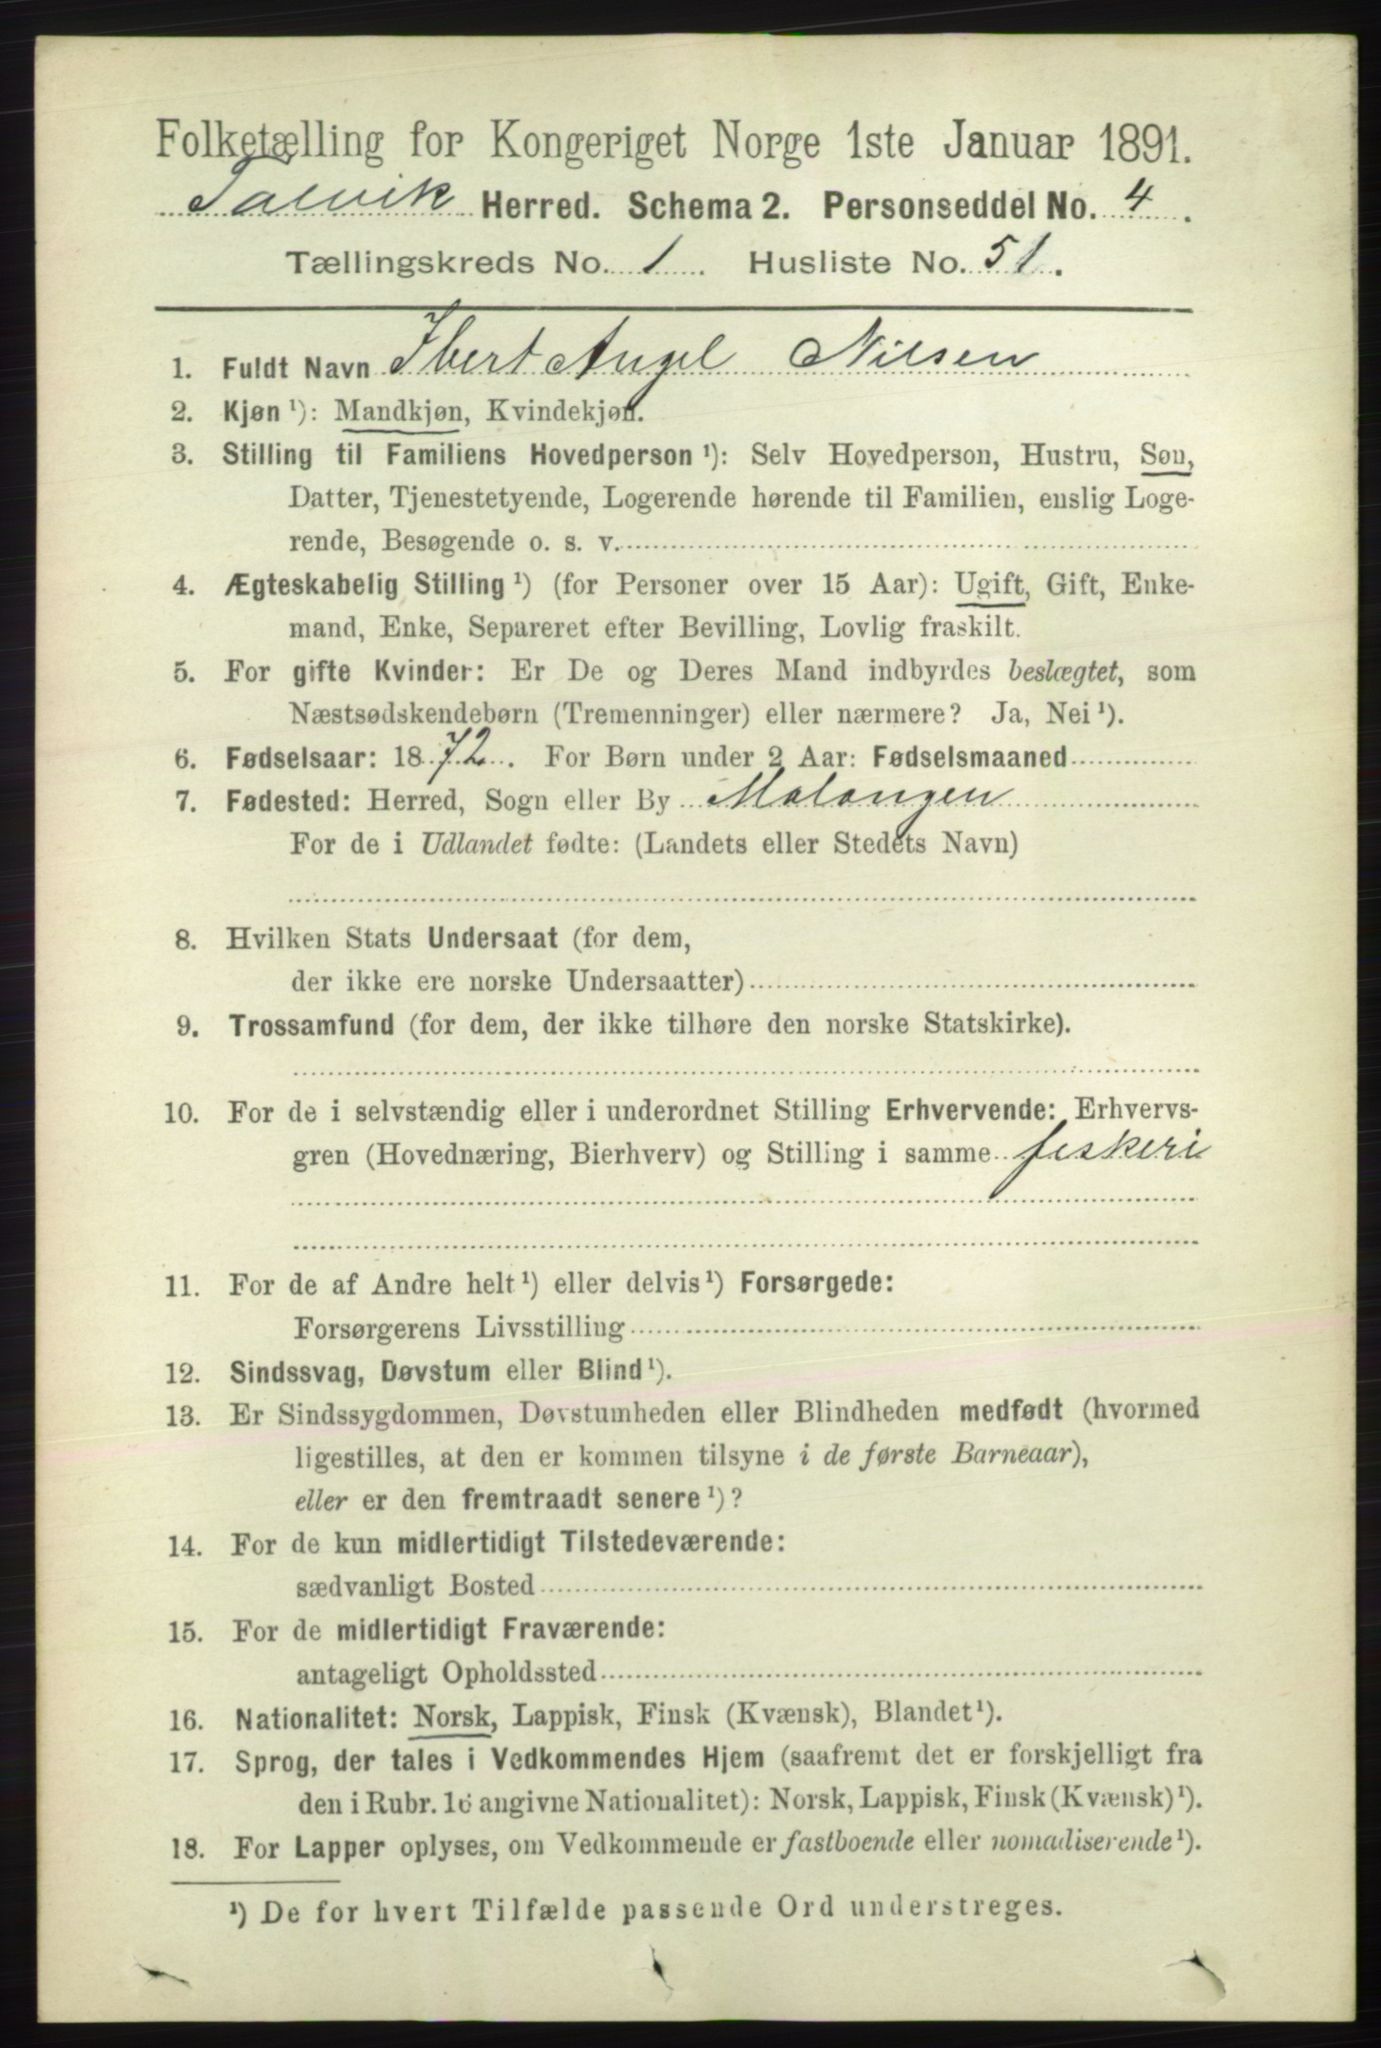 Folketælling for Kongeriget Norge 1ste Januar 1891.
Talvik Herred. Schema 2. Personseddel No. 4.
Tællingskreds No. 1 Husliste No. 51.
1. Fuldt Navn Ibert Angel Nilsen
2. Kjøn ¹): Mandkjøn, Kvindekjøn.
3. Stilling til Familiens Hovedperson ¹): Selv Hovedperson, Hustru, Søn,
Datter, Tjenestetyende, Logerende hørende til Familien, enslig Loge-
rende, Besøgende o. s. v.
4. Ægteskabelig Stilling ¹) (for Personer over 15 Aar): Ugift, Gift, Enke-
mand, Enke, Separeret efter Bevilling, Lovlig fraskilt.
5. For gifte Kvinder: Er De og Deres Mand indbyrdes beslægtet, som
Næstsødskendebørn (Tremenninger) eller nærmere? Ja, Nei ¹).
6. Fødselsaar: 1872. For Børn under 2 Aar: Fødselsmaaned
7. Fødested: Herred, Sogn eller By Malangen
For de i Udlandet fødte: (Landets eller Stedets Navn)
8. Hvilken Stats Undersaat (for dem,
der ikke ere norske Undersaatter)
9. Trossamfund (for dem, der ikke tilhøre den norske Statskirke).
10. For de i selvstændig eller i underordnet Stilling Erhvervende: Erhvervs-
gren (Hovednæring, Bierhverv) og Stilling i samme fiskeri
11. For de af Andre helt ¹) eller delvis ¹) Forsørgede:
Forsørgerens Livsstilling
12. Sindssvag, Døvstum eller Blind ¹).
13. Er Sindssygdommen, Døvstumheden eller Blindheden medfødt (hvormed
ligestilles, at den er kommen tilsyne i de første Barneaar),
eller er den fremtraadt senere ¹)?
14. For de kun midlertidigt Tilstedeværende:
sædvanligt Bosted
15. For de midlertidigt Fraværende:
antageligt Opholdssted
16. Nationalitet: Norsk, Lappisk, Finsk (Kvænsk), Blandet ¹).
17. Sprog, der tales i Vedkommendes Hjem (saafremt det er forskjelligt fra
den i Rubr. 16 angivne Nationalitet): Norsk, Lappisk, Finsk (Kvænsk) ¹).
18. For Lapper oplyses, om Vedkommende er fastboende eller nomadiserende ¹).
¹) De for hvert Tilfælde passende Ord understreges.